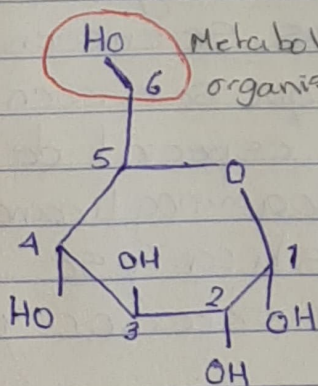 HO Metabol
6 organis
5 O
4 OH 1
HO 3 2 OH
OH